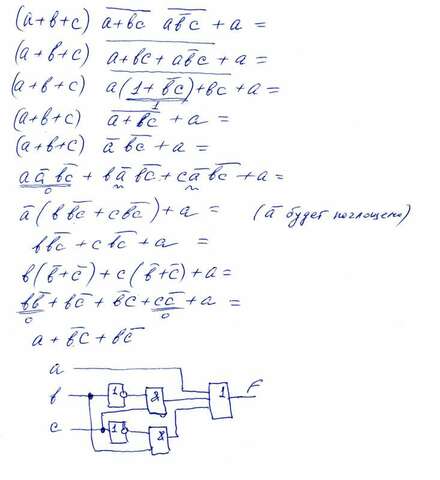 (a+b+c) \overline{a+bc} \overline{a\overline{b}c} + a =
(a+b+c) \overline{a+bc+a\overline{b}c} + a =
(a+b+c) \overline{a(1+\overline{b}c)+bc} + a =
1
(a+b+c) \overline{a+bc} + a =
(a+b+c) \overline{a} \overline{bc} + a =
a\overline{a}\overline{bc} + b\overline{a}\overline{bc} + c\overline{a}\overline{bc} + a =
0
\overline{a}(b\overline{bc} + c\overline{bc}) + a = (\overline{a} будет поглощено)
b\overline{bc} + c\overline{bc} + a =
b(\overline{b}+\overline{c}) + c(\overline{b}+\overline{c}) + a =
b\overline{b} + b\overline{c} + \overline{b}c + c\overline{c} + a =
0 0
a + \overline{b}c + b\overline{c}
a
b 1 & 1 F
c 1 &